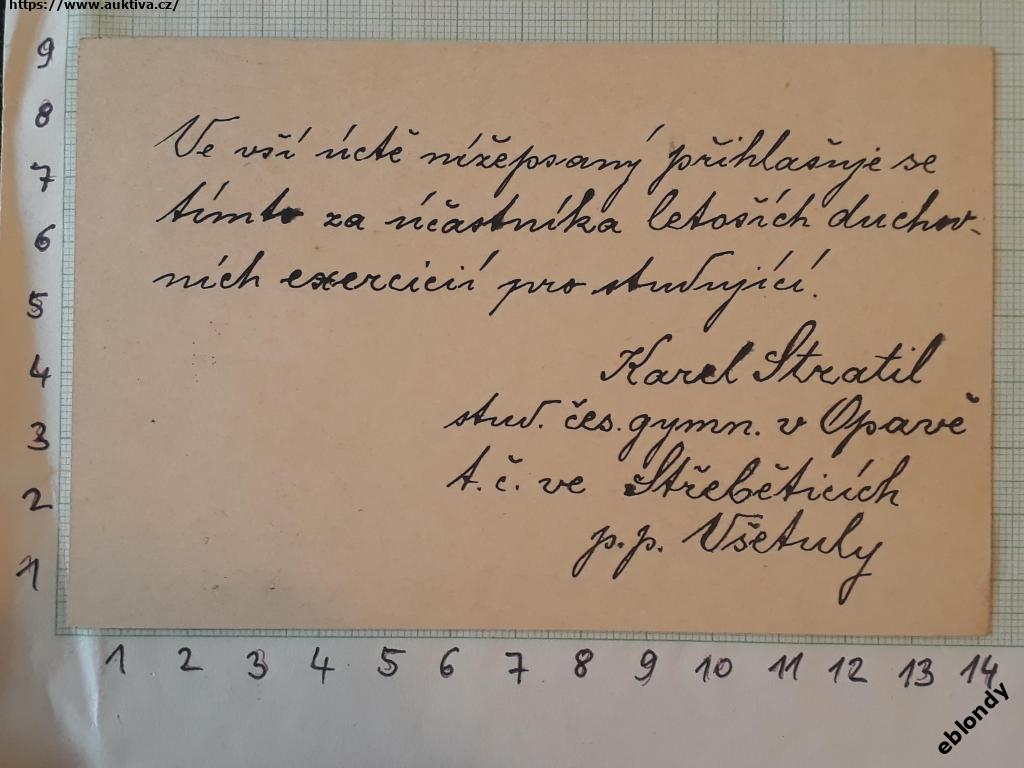 https://www.auktiva.cz/
9
8
7
6
5
4
3
2
1
Ve vší úctě nížepsaný přihlašuje se
tímto za účastníka letoších duchov-
ních exercicií pro studující.
Karel Stratil
stud. čes. gymn. v Opavě
t. č. ve Střeběticích
p. p. Všetuly
1 2 3 4 5 6 7 8 9 10 11 12 13 14
eblondy